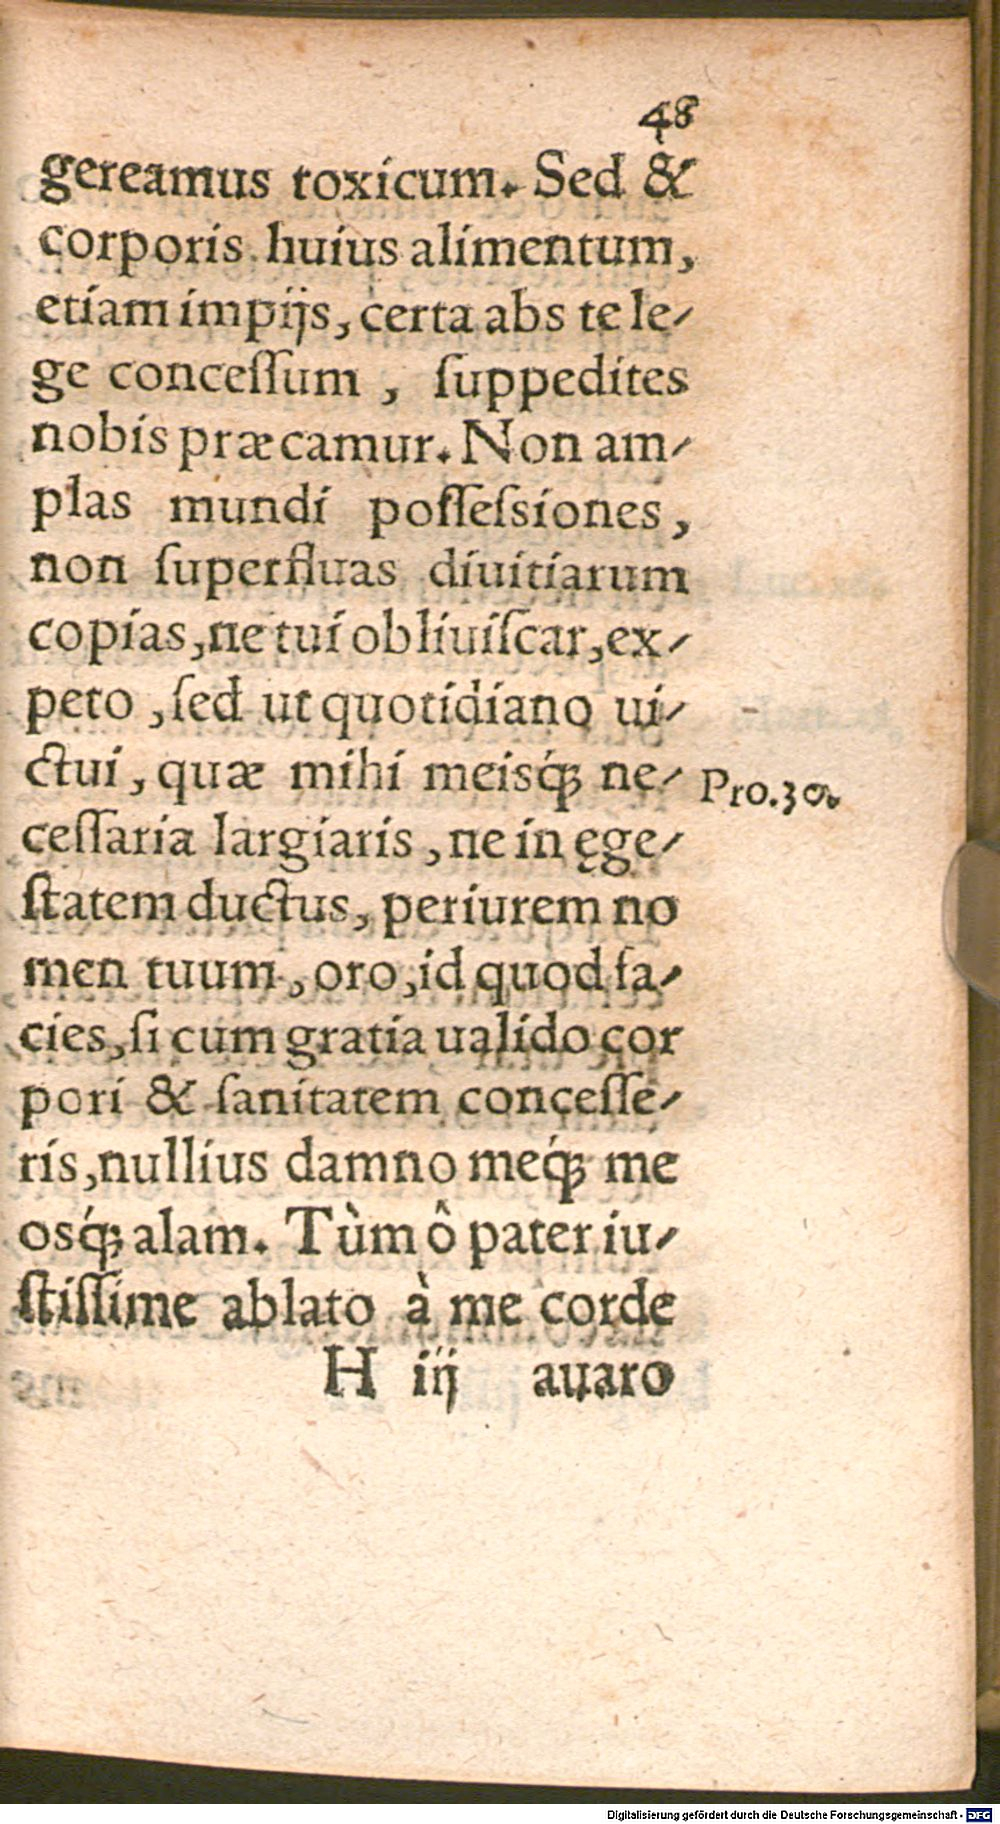 48
gereamus toxicum. Sed &
corporis huius alimentum,
etiam impijs, certa abs te le⸗
ge conceſſum , ſuppedites
nobis præcamur. Non am⸗
plas mundi poſſeſsiones,
non ſuperfluas diuitiarum
copias, ne tui obliuiſcar, ex⸗
peto , ſed ut quotidiano ui⸗
ctui, quæ mihi meisq́ꝫ ne⸗
Pro.30.
ceſſaria largiaris , ne in ęge⸗
ſtatem ductus, periurem no
men tuum , oro, id quod fa⸗
cies, ſi cum gratia ualido cor
pori & ſanitatem conceſſe⸗
ris, nullius damno meq́ꝫ me
osq́ꝫ alam. Tùm ô pater iu⸗
ſtiſſime ablato à me corde
H iij auaro
Digitalisierung gefördert durch die Deutsche Forschungsgemeinschaft - DFG